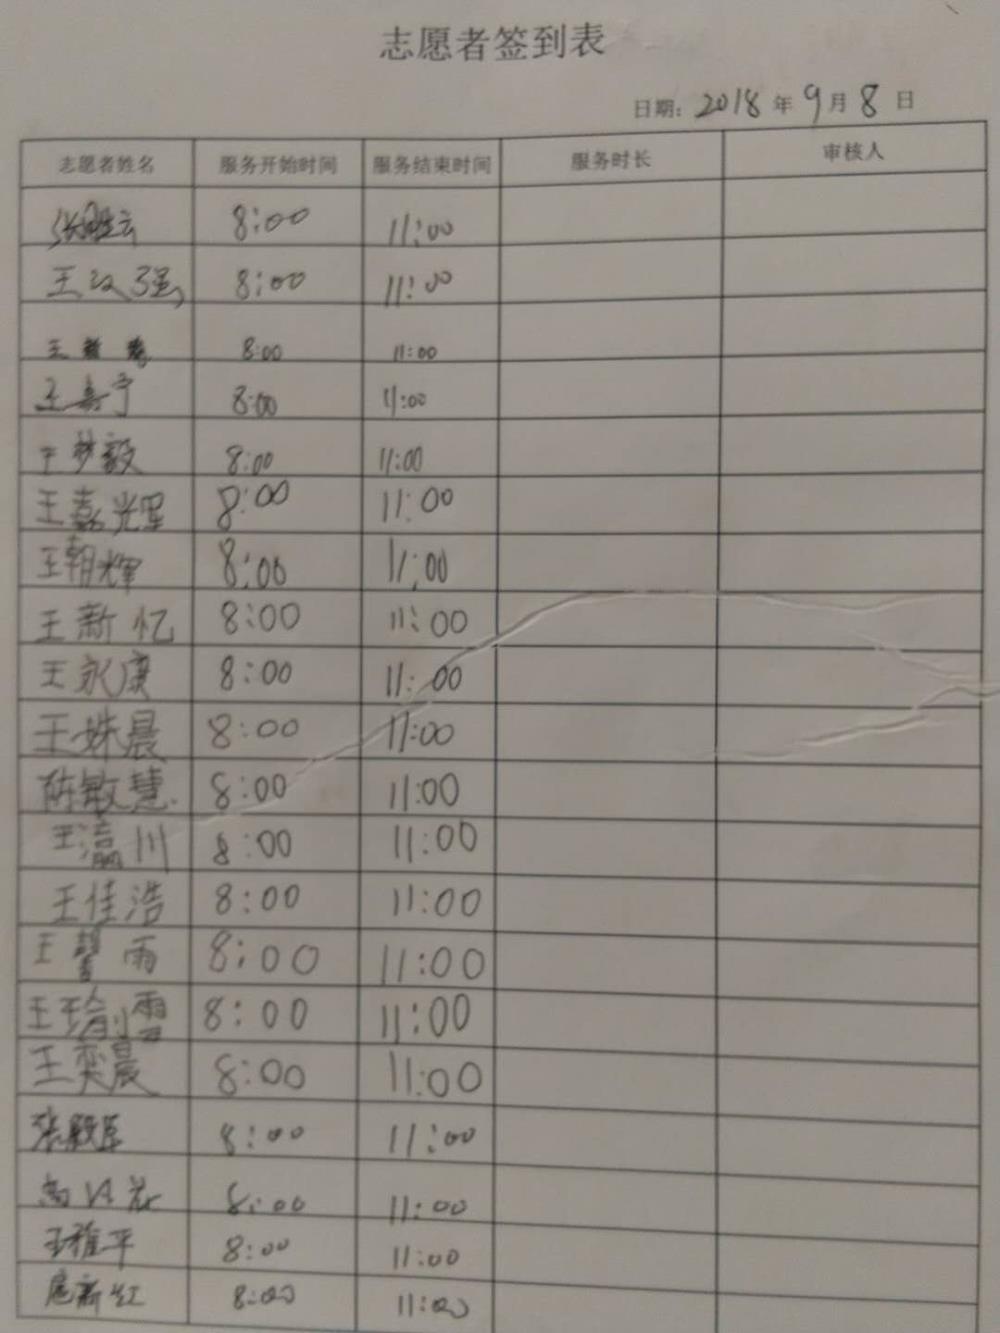 志愿者签到表
日期: 2018 年 9 月 8 日
志愿者姓名 服务开始时间 服务结束时间 服务时长 审核人
8:00 11:00
王汉强 8:00 11:00
王 8:00 11:00
王嘉宁 8:00 11:00
王梦毅 8:00 11:00
王嘉辉 8:00 11:00
王朝辉 8:00 11:00
王新忆 8:00 11:00
王永康 8:00 11:00
王姝晨 8:00 11:00
陈敏慧 8:00 11:00
王瀛川 8:00 11:00
王佳浩 8:00 11:00
王 雨 8:00 11:00
王瑜雪 8:00 11:00
王奕晨 8:00 11:00
张毅 8:00 11:00
高 8:00 11:00
王雅平 8:00 11:00
扈新红 8:00 11:00